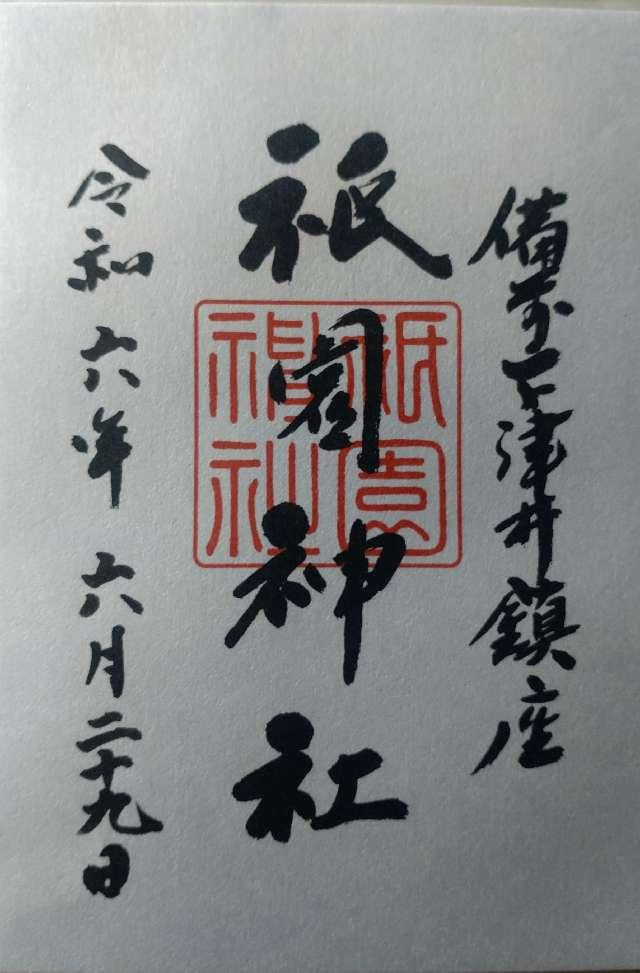 備前下津井鎮座
祇園神社
祇園
神社
令和六年六月二十九日